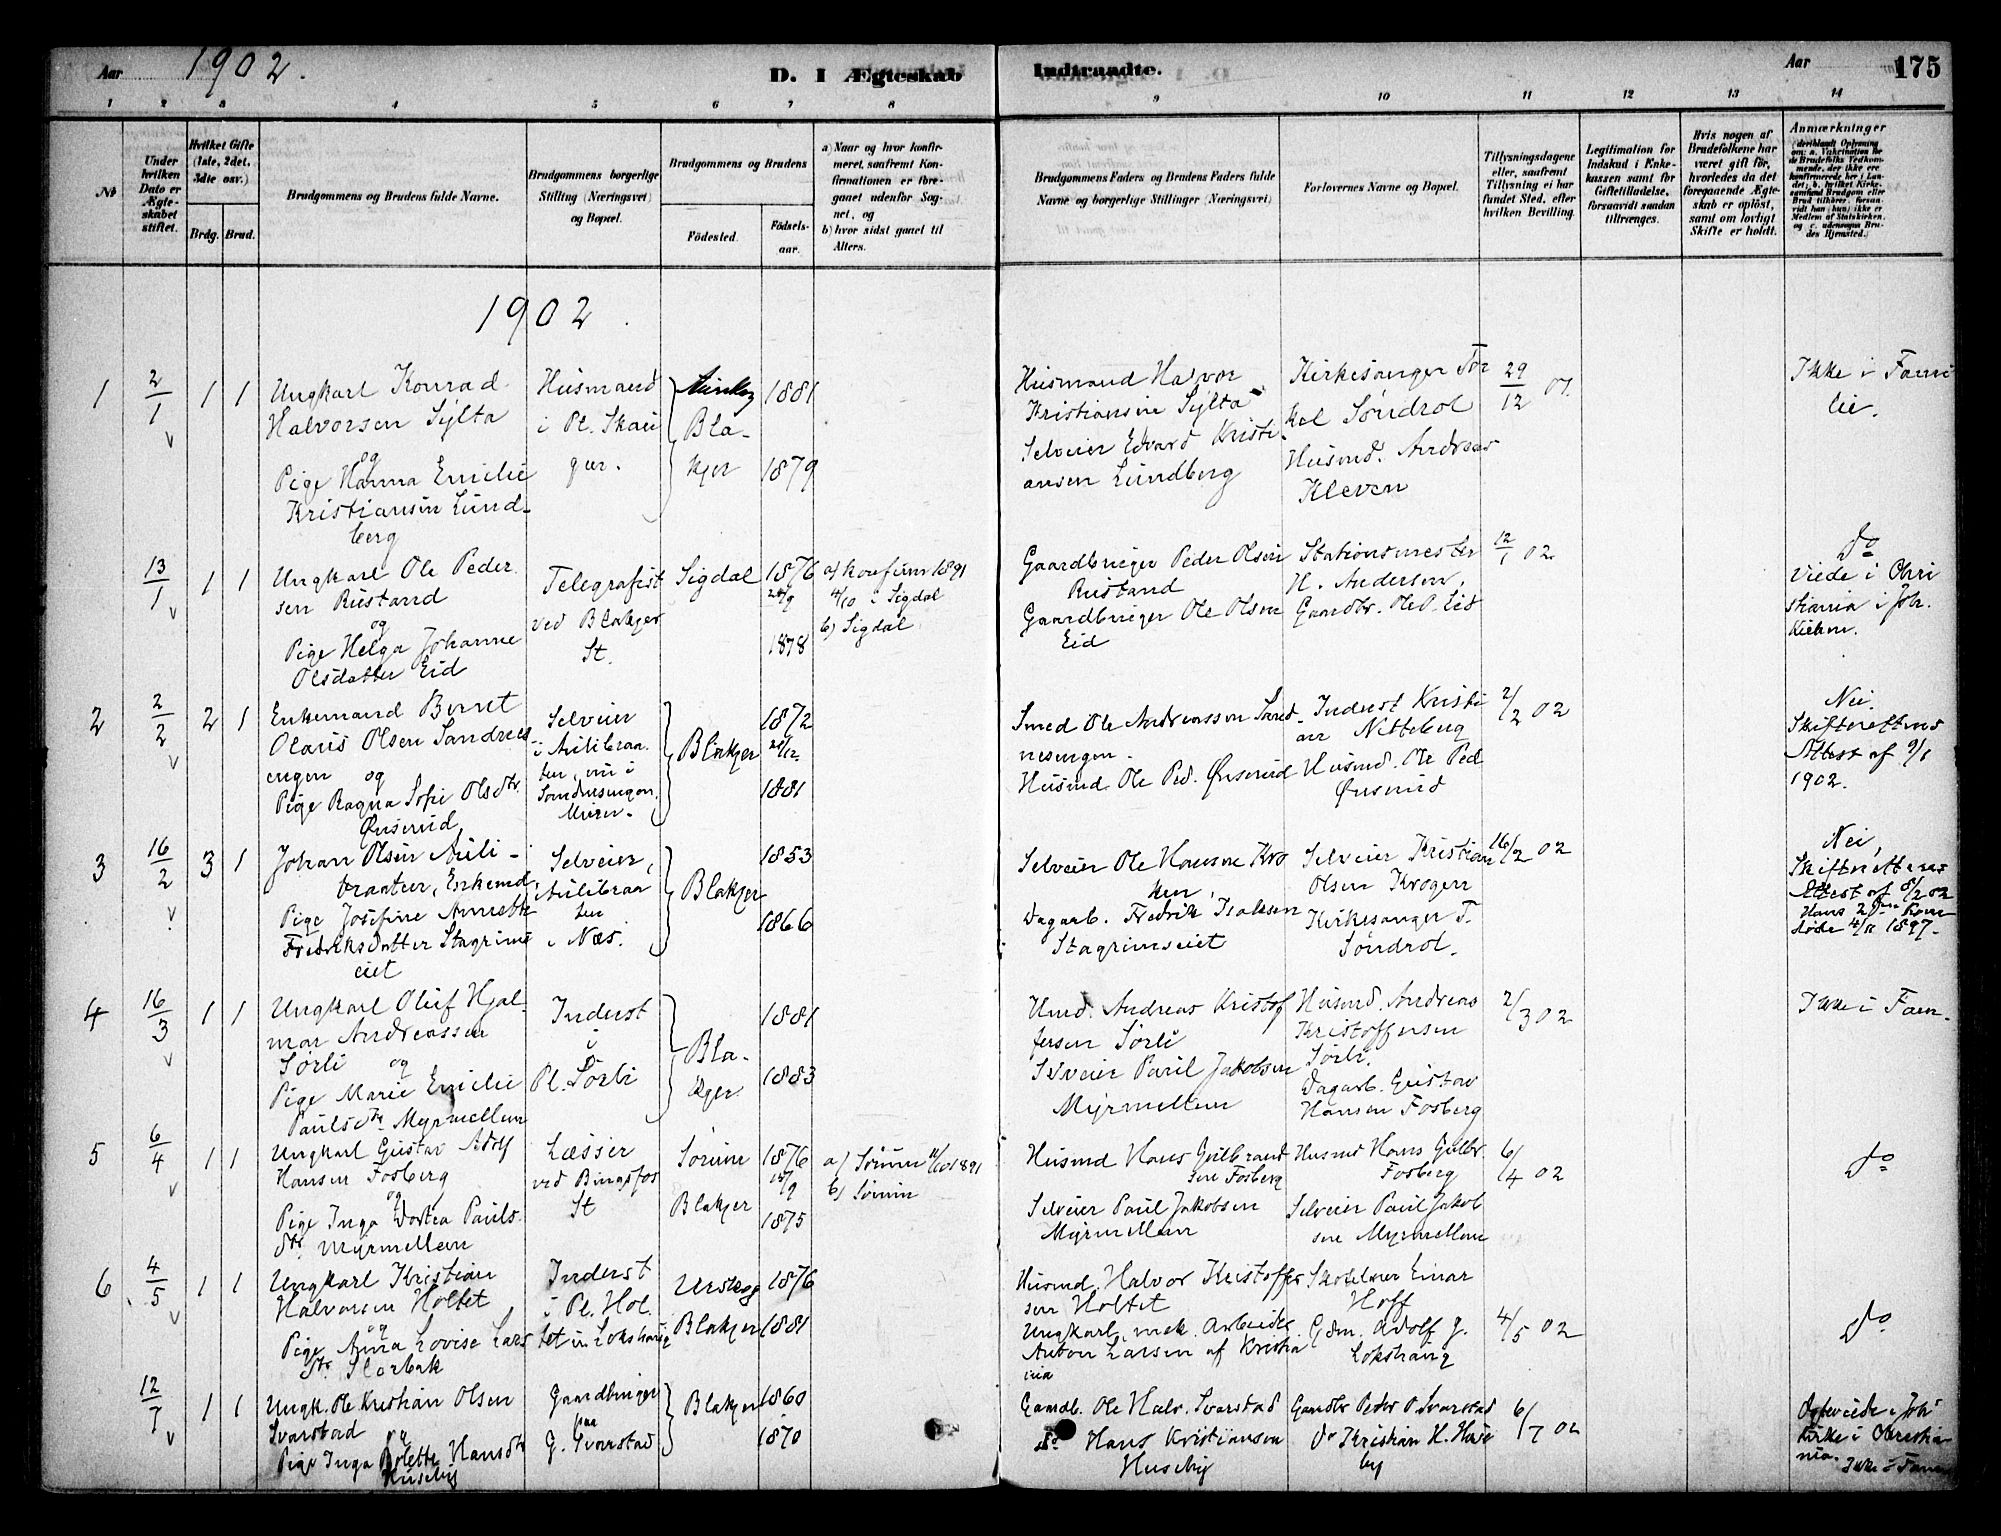 Aar 1902.
D. I Ægteskab
Indtraadte.
Aar
175
1 2 3 4 5 6 7 8 9 10 11 12 13 14
Nr
Under hvilken Dato er Ægteskabet stiftet.
Hvilket Gifte (1ste, 2det, 3die osv.)
Brdg. Brud.
Brudgommens og Brudens fulde Navne.
Brudgommens borgerlige Stilling (Næringsvei) og Bopæl.
Brudgommens og Brudens
Födested.
Födselsaar.
a) Naar og hvor konfirmeret, saafremt Konfirmationen er foregaaet udenfor Sognet, og
b) hvor sidst gaaet til Alters.
Brudgommens Faders og Brudens Faders fulde Navne og borgerlige Stillinger (Næringsvei)
Forlovernes Navne og Bopæl.
Tillysningsdagene eller, saafremt Tillysning ei har fundet Sted, efter hvilken Bevilling.
Legitimation for Indskud i Enkekassen samt for Giftetilladelse, forsaavidt saadan tiltrænges.
Hvis nogen af Brudefolkene har været gift för, hvorledes da det foregaaende Ægteskab er oplöst, samt om lovligt Skifte er holdt.
Anmærkninger
1902.
1
2/1
1 1
Ungkarl Konrad
Halvorsen Sylta
og
Pige Hanna Emilie
Kristiansen Lund-
berg
Husmand
i Pl. Skau
1881
Bla-
kjer 1879
Husmand Halvor
Kristiansen Sylta
Selveier Edvard Kristi-
ansen Lundberg
Kirkesanger Tor
kel Söndrol
Husmd. Andreas
Kleven
29/12 01.
Ikke i Fami
lie.
13/1
1 1
Ungkarl Ole Peder
sen Rustand
og
Pige Helga Johanne
Olsdatter Eid
Telegrafist
ved Blakjer
St.
Sigdal
1876
1878
a) konfirm 1891
4/10 i Sigdal
b) Sigdal
Gaardbruger Peder Olsen
Rustand
Gaardbruger Ole Olsen
Eid
Stationsmester
H. Andersen.
Gaardbr. Ole O. Eid
12/1 02
do
Viede i Chri
stiania i Joh.
Kirken.
2
2/2
2 1
Enkemand Bernt
Olaus Olsen Sandnes
engen og
Pige Ragna Sofie Olsdtr.
Ønsrud
Selveier
i Aulibraa-
ten, nu i
Blakjer
1872
1881
Smed Ole Andreassen Sand-
nesengen.
Husmd Ole Ped. Ønsrud
Inderst Kristi
an Netteberg
Husmd. Ole Ped
Ønsrud
2/2 02
Nei.
Skifterettens
Attest af 9/1
1902.
3
16/2
3 1
Johan Olsen Auli-
braaten, Enkemd.
Pige Josefine Annette
Fredriksdatter Stagrims
eiet
Selveier,
Aulibraa
ten
i Næs.
Blakjer
1853
1866
Selveier Ole Hansen Kro
ken,
Dagarb. Fredrik Isaksen
Stagrimseiet
Selveier Kristian
Olsen Krogen
Kirkesanger T.
Söndrol.
16/2 02
Nei,
Skifterettens
Attest af 8/2 02
Hans 2den Kone
døde 4/11 1897.
4
16/3
1 1
Ungkarl Oluf Hjal-
mar Andreassen
Sørli og
Pige Marie Emilie
Paulsdtr Myrmellem
Inderst
i
Pl. Sörli
1881
Bla-
kjer
1883
Hmd. Andreas Kristof
fersen Sörli
Selveier Paul Jakobsen
Myrmellem
Husmd. Andreas
Kristoffersen
Sörli.
Dagarb. Gustav
Hansen Fosberg
2/3 02
Ikke i Fam.
5
6/4
1 1
Ungkarl Gustav Adolf
Hansen Fosberg
og
Pige Inga Dortea Pauls
dtr. Myrmellem
Læsser
ved Bingsfos
St
Sørum 1876
Blakjer 1875
a) Sørum 11/10 1891
b) Sørum
Husmd Hans Gulbrand
sen Fosberg
Selveier Paul Jakobsen
Myrmellem
Husmd Hans Gulbr.
Fosberg
Selveier Paul Jakob
sen Myrmellem
6/4 02
do
6
4/5
1 1
Ungkarl Kristian
Halvorsen Holtet
og
Pige Anna Lovise Lars
dtr. Slorbak
Inderst
i Pl. Hol-
tet u. Lokshaug
Urskog 1876
Blakjer 1881
Husmd. Halvor Kristoffer
sen Holtet
Ungkarl, mek. Arbeider
Anton Larsen af Kristia
nia
Skolelærer Einar
Hoff
Gdm. Adolf G.
Lokshaug
4/5 02
do
12/7
1 1
Ungk. Ole Kristian Olsen
Svarstad og
Pige Inga Bolette Hansdtr
Huseby
Gaardbruger
paa
G. Svarstad
Blakjer
1860
1870
Gaardb. Ole Halv. Svarstad
do Hans Kristiansen
Huseby
Gaardbr Peder O. Svarstad
do Kristian H. Huse
by
6/7 02
Ogsaa viede i Joh.
Kirke i Christia
nia. Ikke i Fam